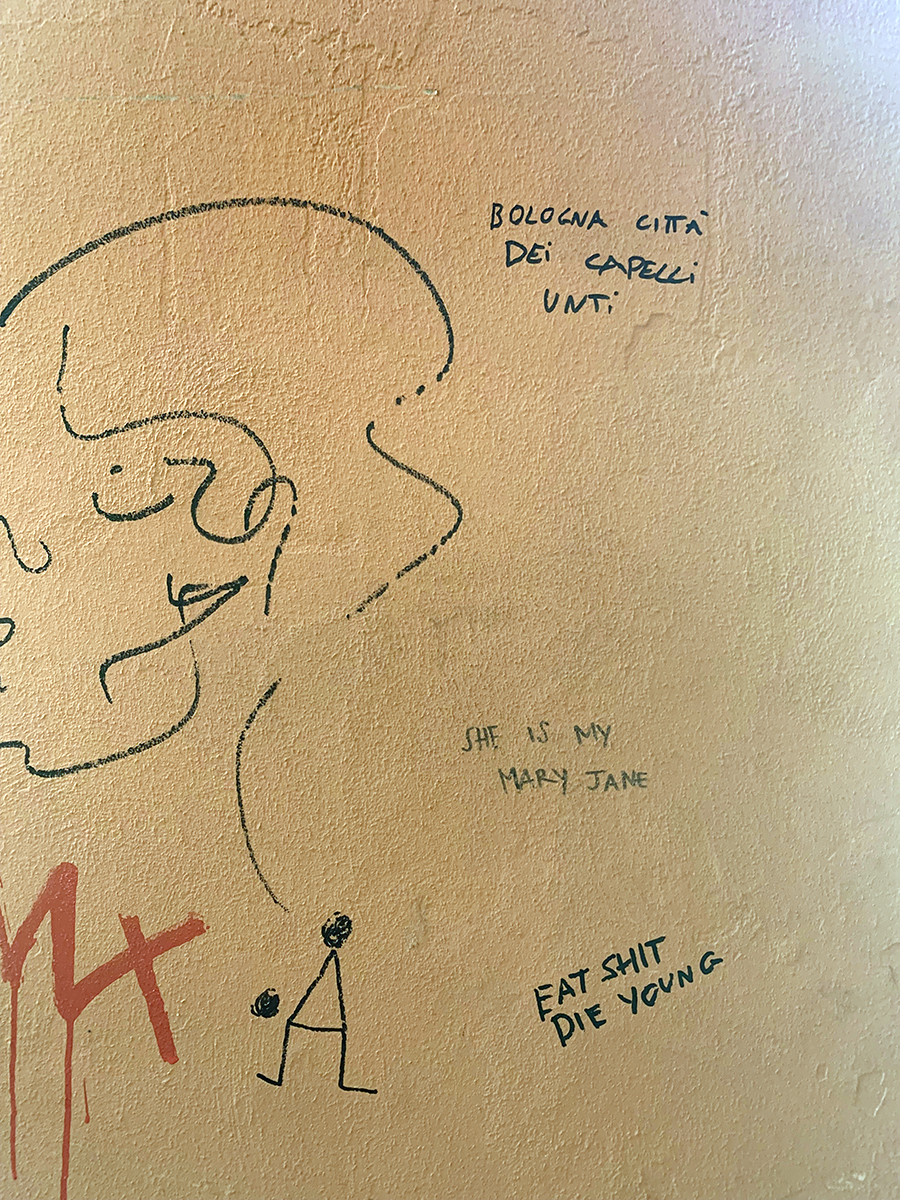 BOLOGNA CITTÀ
DEi CAPELLi
UNTi
SHE IS MY
MARY JANE
EAT SHIT
DIE YOUNG